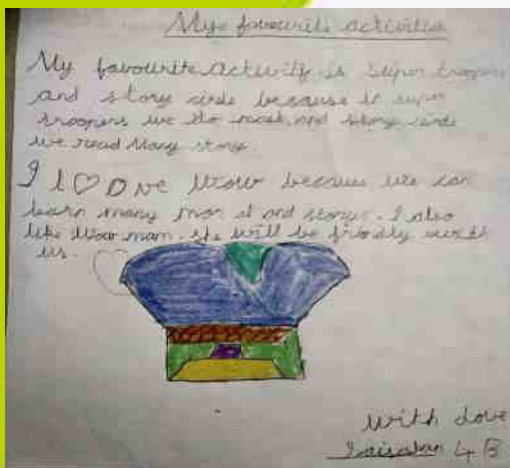 My favourite activities
My favourite activity is super troopers
and story circle because in super
troopers we do mask and story circle
we read many story.
I l♡ove Wow because we can
learn many and storys. I also
like Wow mam. she will be friendly with
us.
With Love
4 B